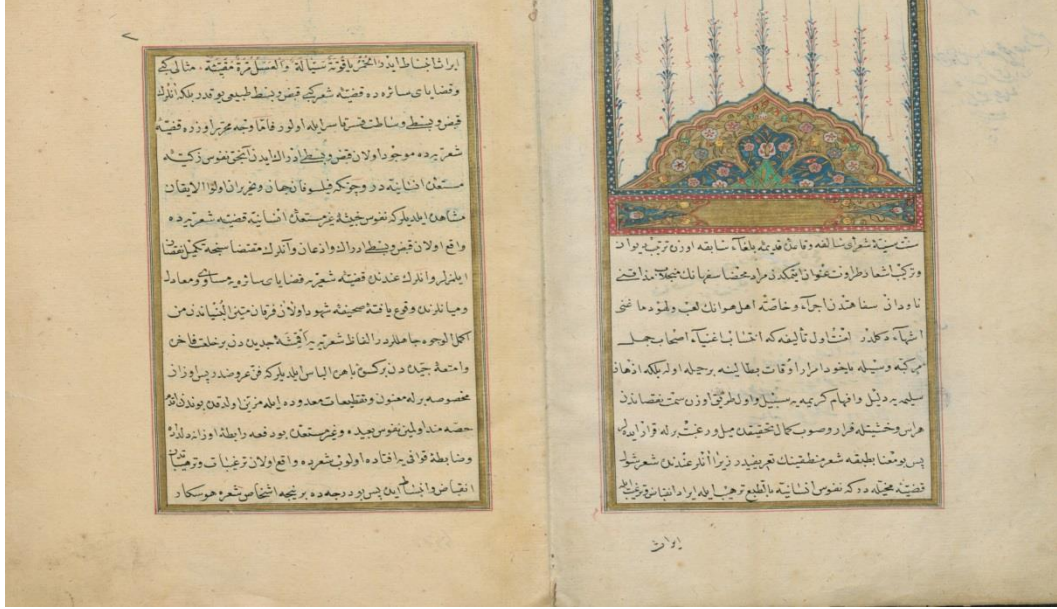 شعرای سالفه و قاعدهٔ قدیمهٔ بلغاء سابقه اوزره ترتیب دیوان
و ترکیب اشعار طراوت عنوان ایتمکدن مراد محضا سفهانك مذاقنی
ناودانی سفاهتدن اجراء و خاصة اهل هوانك لعب و لهوه دماغنی
اشهاء دکلدر اول تألیفه که اغبیاء اصحاب جهل
مرکبه وسیله یاخود امرار اوقات بطالینه برحیله اوله بلکه اذهان
سلیمه یه دلیل و افهام کریمه یه سبیل و اول طریق اوزره سمت نقصاندن
هراس و خشیتله فرار و صوب کمال تحقیقه میل و رغبت برله قرار ایده لر
پس بو معنا شعر منطقینك تعریفیدر زیرا انلر عندنده شعر شول
قضیهٔ مخیله در که نفوس انسانیه ترهیب ایله ایراد انقباض و ترغیب ایله
ایراث
ایراث انبساط ایده الخمر یاقوتة سیالة والعسل مرة مقیئة مثالی کبی
و قضایای سائره ده قضیهٔ شعر کبی قبض و بسط طبیعی یوقدر بلکه انلرك
قبض و بسطی وساطت قسر قاسر ایله اولور فاما وجه محرر اوزره قضیهٔ
شعریه ده موجود اولان قبض و بسطی ادراك ایدن آنجق نفوس زکیهٔ
مستعدهٔ انسانیه در و چونکه فیلسوفان جهان و نحریران اولوا الایقان
مشاهده ایلدیلر که نفوس خبیثهٔ غیر مستعدهٔ انسانیه قضیهٔ شعریه ده
واقع اولان قبض و بسطی ادراك و اذعان و آنلرك مقتضاسنجه تکمیل نقصان
ایلمزلر و انلرك عندنده قضیهٔ شعریه قضایای سائره یه مساوی و معادله
و میانلرنده وقوع یافتهٔ صحیفهٔ شهود اولان فرقان متین البنیاندن من
اکمل الوجوه جاهللردر الفاظ شعریه یه اقمشهٔ جدیده دن بر خلعت فاخره
و امتعهٔ جیده دن برکسوهٔ باهره الباس ایلدیلر که فن عروضده در پس اوزان
مخصوصه برله معنون و تقطیعات معدوده ایله مزین اولدقده بوندن اقدم
حصه مند اولمین نفوس بعیده و غیر مستعده بو دفعه رابطهٔ اوزانه دلداده
و ضابطهٔ قوافی یه افتاده اولوب شعرده واقع اولان ترغیبات و ترهیباتدن
انقباض و انبساط ایده پس بو درجه ده بر نیجه اشخاص شعره هوسکار